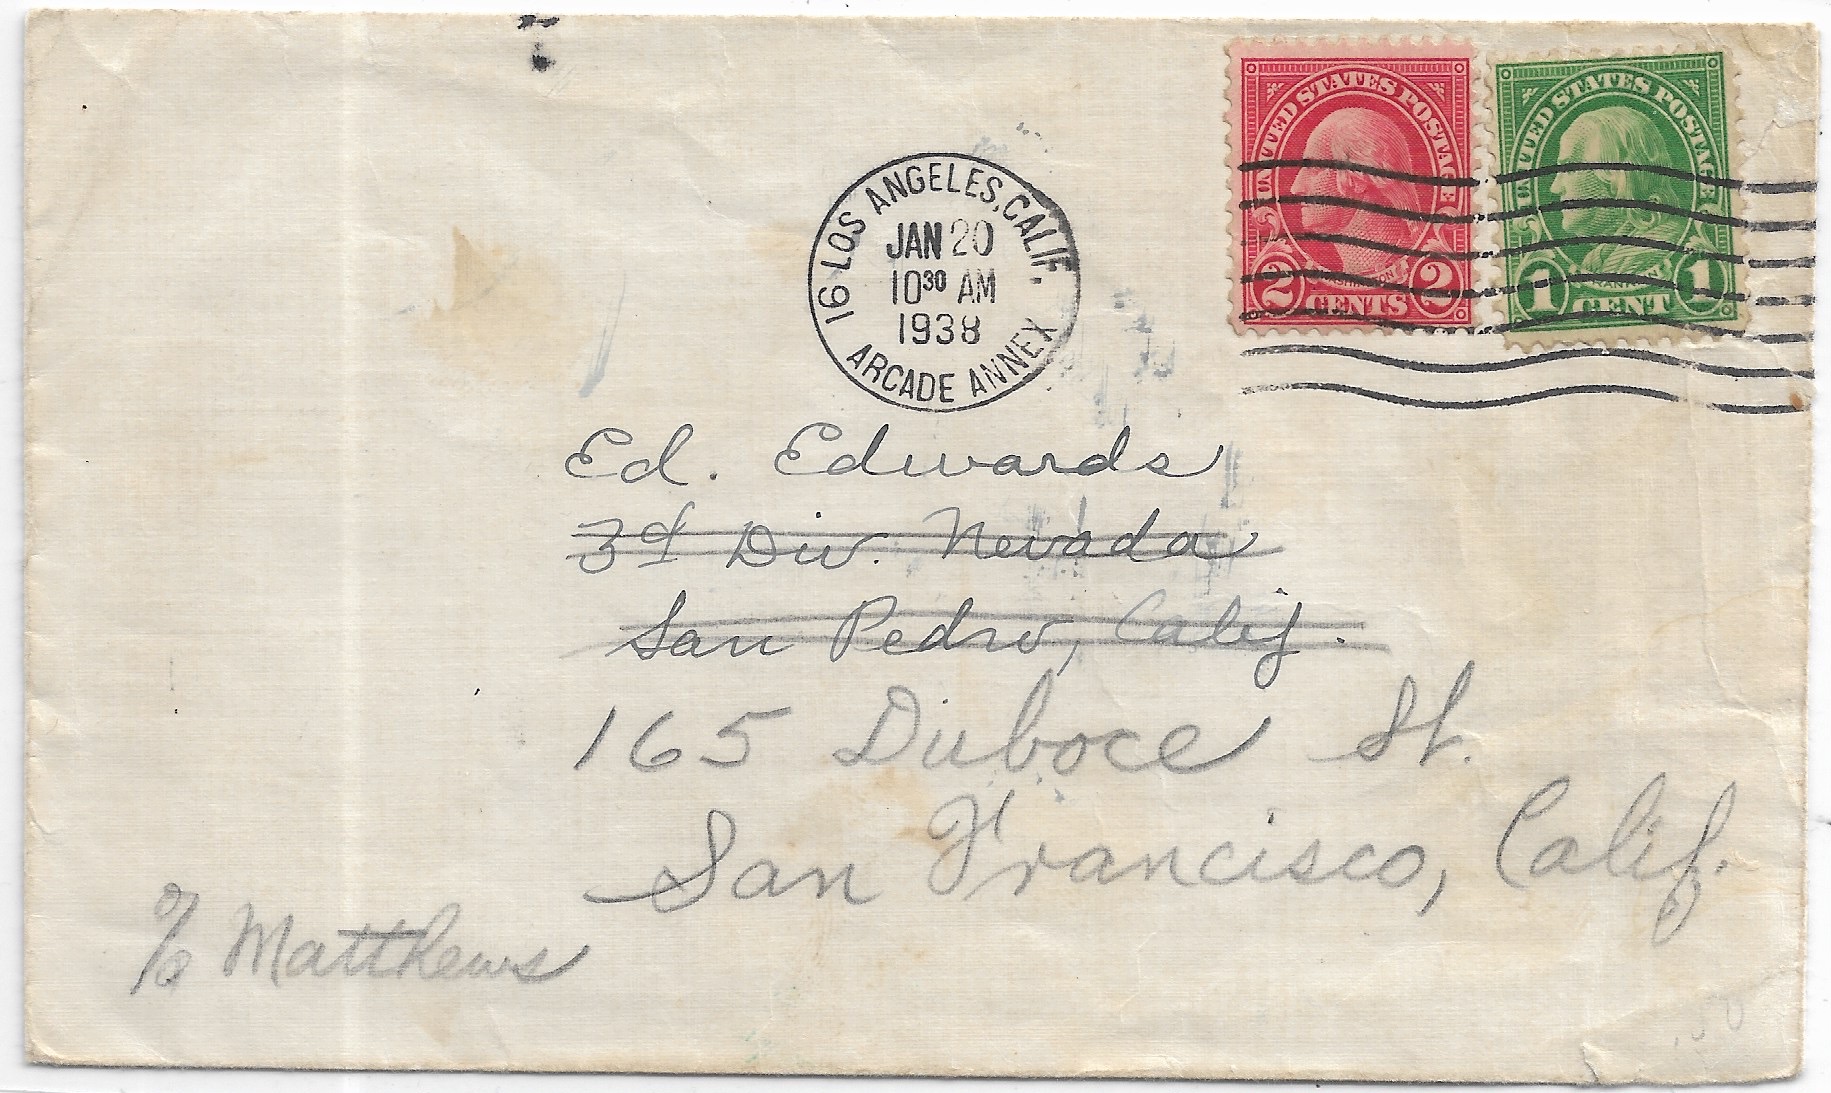 UNITED STATES POSTAGE
WASHINGTON
2 CENTS 2
UNITED STATES POSTAGE
FRANKLIN
1 CENT 1
16 LOS ANGELES, CALIF.
JAN 20
10 30 AM
1938
ARCADE ANNEX
Ed. Edwards
3d Div. Nevada
San Pedro, Calif.
165 Duboce St.
San Francisco, Calif.
c/o Matthews
.50